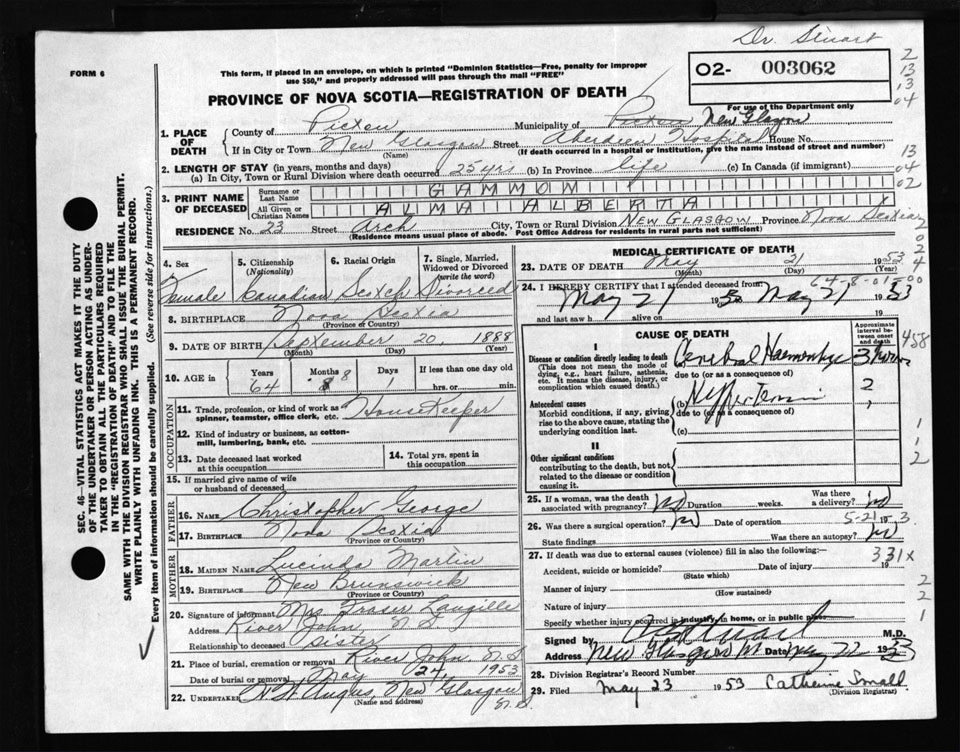 Dr. Stuart
FORM 6
This form, if placed in an envelope, on which is printed "Dominion Statistics—Free, penalty for improper
use $50," and properly addressed will pass through the mail "FREE"
02- 003062
For use of the Department only
PROVINCE OF NOVA SCOTIA—REGISTRATION OF DEATH
2
13
13
04
13
04
02
1. PLACE OF DEATH
County of Pictou Municipality of Pictou New Glasgow
If in City or Town New Glasgow Street Aberdeen Hospital House No.
(Name) (If death occurred in a hospital or institution, give the name instead of street and number)
2. LENGTH OF STAY (in years, months and days)
(a) In City, Town or Rural Division where death occurred 25 yrs (b) In Province life (c) In Canada (if immigrant)
3. PRINT NAME OF DECEASED
Surname or Last Name GAMMON
All Given or Christian Names ALMA ALBERTA
RESIDENCE No. 23 Street Arch City, Town or Rural Division NEW GLASGOW Province Nova Scotia
(Residence means usual place of abode. Post Office Address for residents in rural parts not sufficient)
4. Sex
Female
5. Citizenship (Nationality)
Canadian
6. Racial Origin
Scotch
7. Single, Married, Widowed or Divorced (write the word)
Divorced
8. BIRTHPLACE Nova Scotia
(Province or Country)
9. DATE OF BIRTH September 20, 1888
(Month) (Day) (Year)
10. AGE in
Years Months Days If less than one day old
64 8 8 1 hrs. or min.
OCCUPATION
11. Trade, profession, or kind of work as spinner, teamster, office clerk, etc. HouseKeeper
12. Kind of industry or business, as cotton-mill, lumbering, bank, etc.
13. Date deceased last worked at this occupation
14. Total yrs. spent in this occupation
15. If married give name of wife or husband of deceased
FATHER
16. NAME Christopher George
17. BIRTHPLACE Nova Scotia
(Province or Country)
MOTHER
18. MAIDEN NAME Lucinda Martin
19. BIRTHPLACE New Brunswick
(Province or Country)
20. Signature of informant Mrs. Fraser Langille
Address River John, N.S.
Relationship to deceased Sister
21. Place of burial, cremation or removal River John N.S
Date of burial, cremation or removal May 24, 1953
22. UNDERTAKER Angus, New Glasgow
(Name and address) N.S.
MEDICAL CERTIFICATE OF DEATH
23. DATE OF DEATH May 21 1953
(Month) (Day) (Year)
24. I HEREBY CERTIFY that I attended deceased from
May 21 1953 May 21 1953
and last saw h alive on 19
CAUSE OF DEATH
Approximate interval between onset and death
I
Disease or condition directly leading to death
(This does not mean the mode of dying, e.g., heart failure, asthenia, etc. It means the disease, injury, or complication which caused death.)
Cerebral Haemorrhage 3 hours
due to (or as a consequence of)
Antecedent causes
Morbid conditions, if any, giving rise to the above cause, stating the underlying condition last.
(b) Hypertension
due to (or as a consequence of)
(c)
II
Other significant conditions
contributing to the death, but not related to the disease or condition causing it.
458
25. If a woman, was the death associated with pregnancy? no Duration weeks. Was there a delivery? no
26. Was there a surgical operation? no Date of operation 5-21 1953
State findings Was there an autopsy? no
27. If death was due to external causes (violence) fill in also the following:— 331x
Accident, suicide or homicide? Date of injury 19
(State which)
Manner of injury
(How sustained)
Nature of injury
Specify whether injury occurred in industry, in home, or in public place
Signed by M.D.
Address New Glasgow Date May 22 1953
28. Division Registrar's Record Number
29. Filed May 23 1953 Catherine Small
(Division Registrar)
SEC. 46—VITAL STATISTICS ACT MAKES IT THE DUTY
OF THE UNDERTAKER OR PERSON ACTING AS UNDER-
TAKER TO OBTAIN ALL THE PARTICULARS REQUIRED
IN THE "REGISTRATION OF DEATH" AND TO FILE THE
SAME WITH THE DIVISION REGISTRAR WHO SHALL ISSUE THE BURIAL PERMIT.
WRITE PLAINLY WITH UNFADING INK. THIS IS A PERMANENT RECORD.
Every item of information should be carefully supplied. (See reverse side for instructions.)